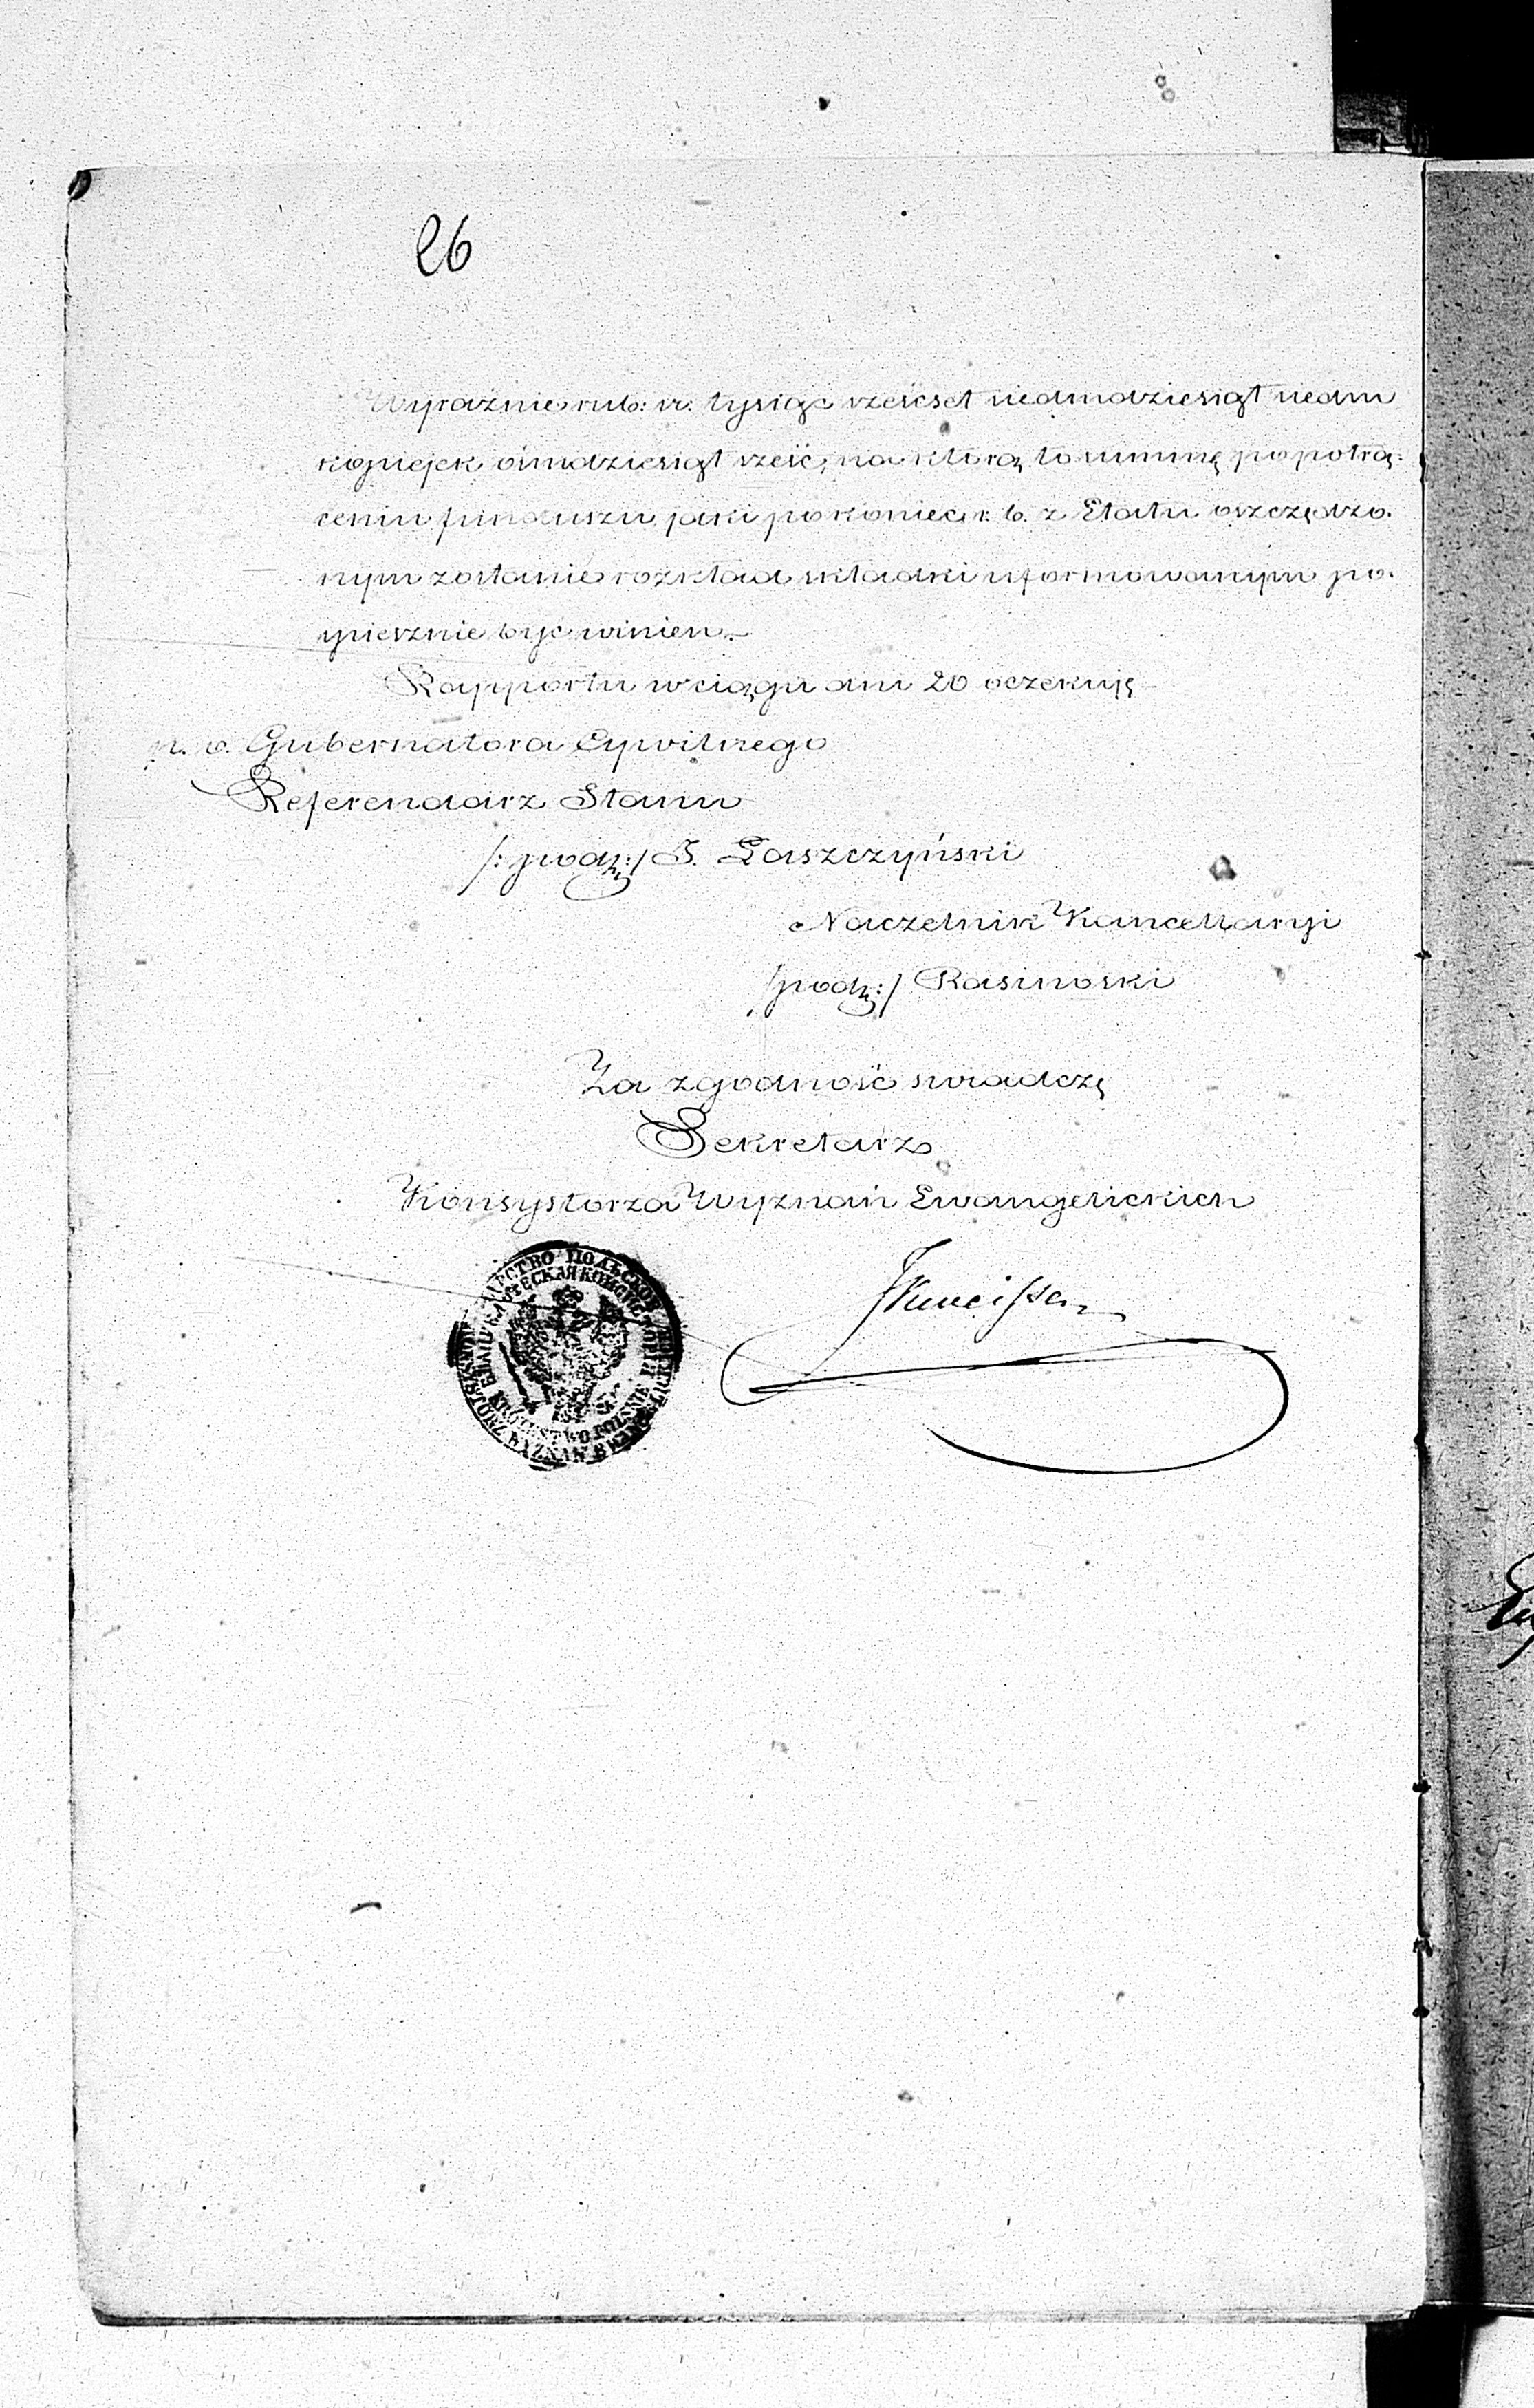 26
Wyraźnie rub: sr: tysiąc sześcset siedmdziesiąt siedm
kopiejek ośmdziesiąt sześć, na którą to summę po potrą-
ceniu funduszu jaki po koniec r. b. z Etatu oszczędzo-
nym zostanie rozkład składki uformowanym po-
spiesznie być winien.—
Rapportu w ciągu dni 20 oczekuję—
p. o. Gubernatora Cywilnego
Referendarz Stanu
/: podp: / J. Łaszczyński
Naczelnik Kancellaryi
/podp: / Rasinowski
Za zgodność swiadczę
Sekretarz
Konsystorza Wyznań Ewangelickich
ЦАРСТВО ПОЛЬСКОЕ
ЕВАНГЕЛИЧЕСКАЯ КОНСИСТОРІЯ
KRÓLESTWO POLSKIE
KONSYSTORZ WYZNAŃ EWANGELICKICH